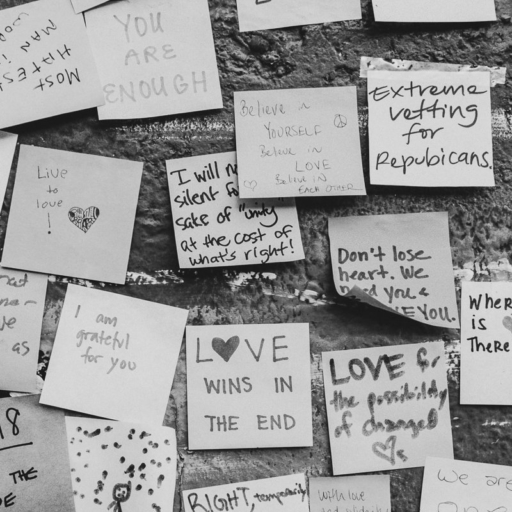 MOST
HATES
MAN IN
YOU
ARE
ENOUGH
Believe in
YOURSELF
Believe in
LOVE
Believe IN
EACH OTHER
Extreme
vetting
for
Repubicans.
Live
to
love
!
I will
silent
sake of "unity
at the cost of
what's right!
Don't lose
heart. We
need you &
YOU.
Where
is
There
I am
grateful
for you
LOVE
WINS IN
THE END
LOVE &
the possibility
of changed
as
18
THE
RIGHT, temporarily
with love
We are